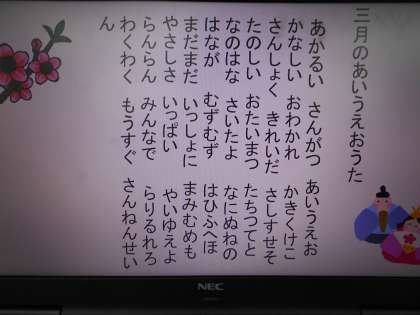 三月のあいうえおうた
あかるい　さんがつ　あいうえお
かなしい　おわかれ　かきくけこ
さんしょく　きれいだ　さしすせそ
たのしい　おたいまつ　たちつてと
なのはな　さいたよ　なにぬねの
はなが　むずむず　はひふへほ
まだまだ　いっしょに　まみむめも
やさしさ　いっぱい　やいゆえよ
らんらん　みんなで　らりるれろ
わくわく　もうすぐ　さんねんせい
ん
NEC